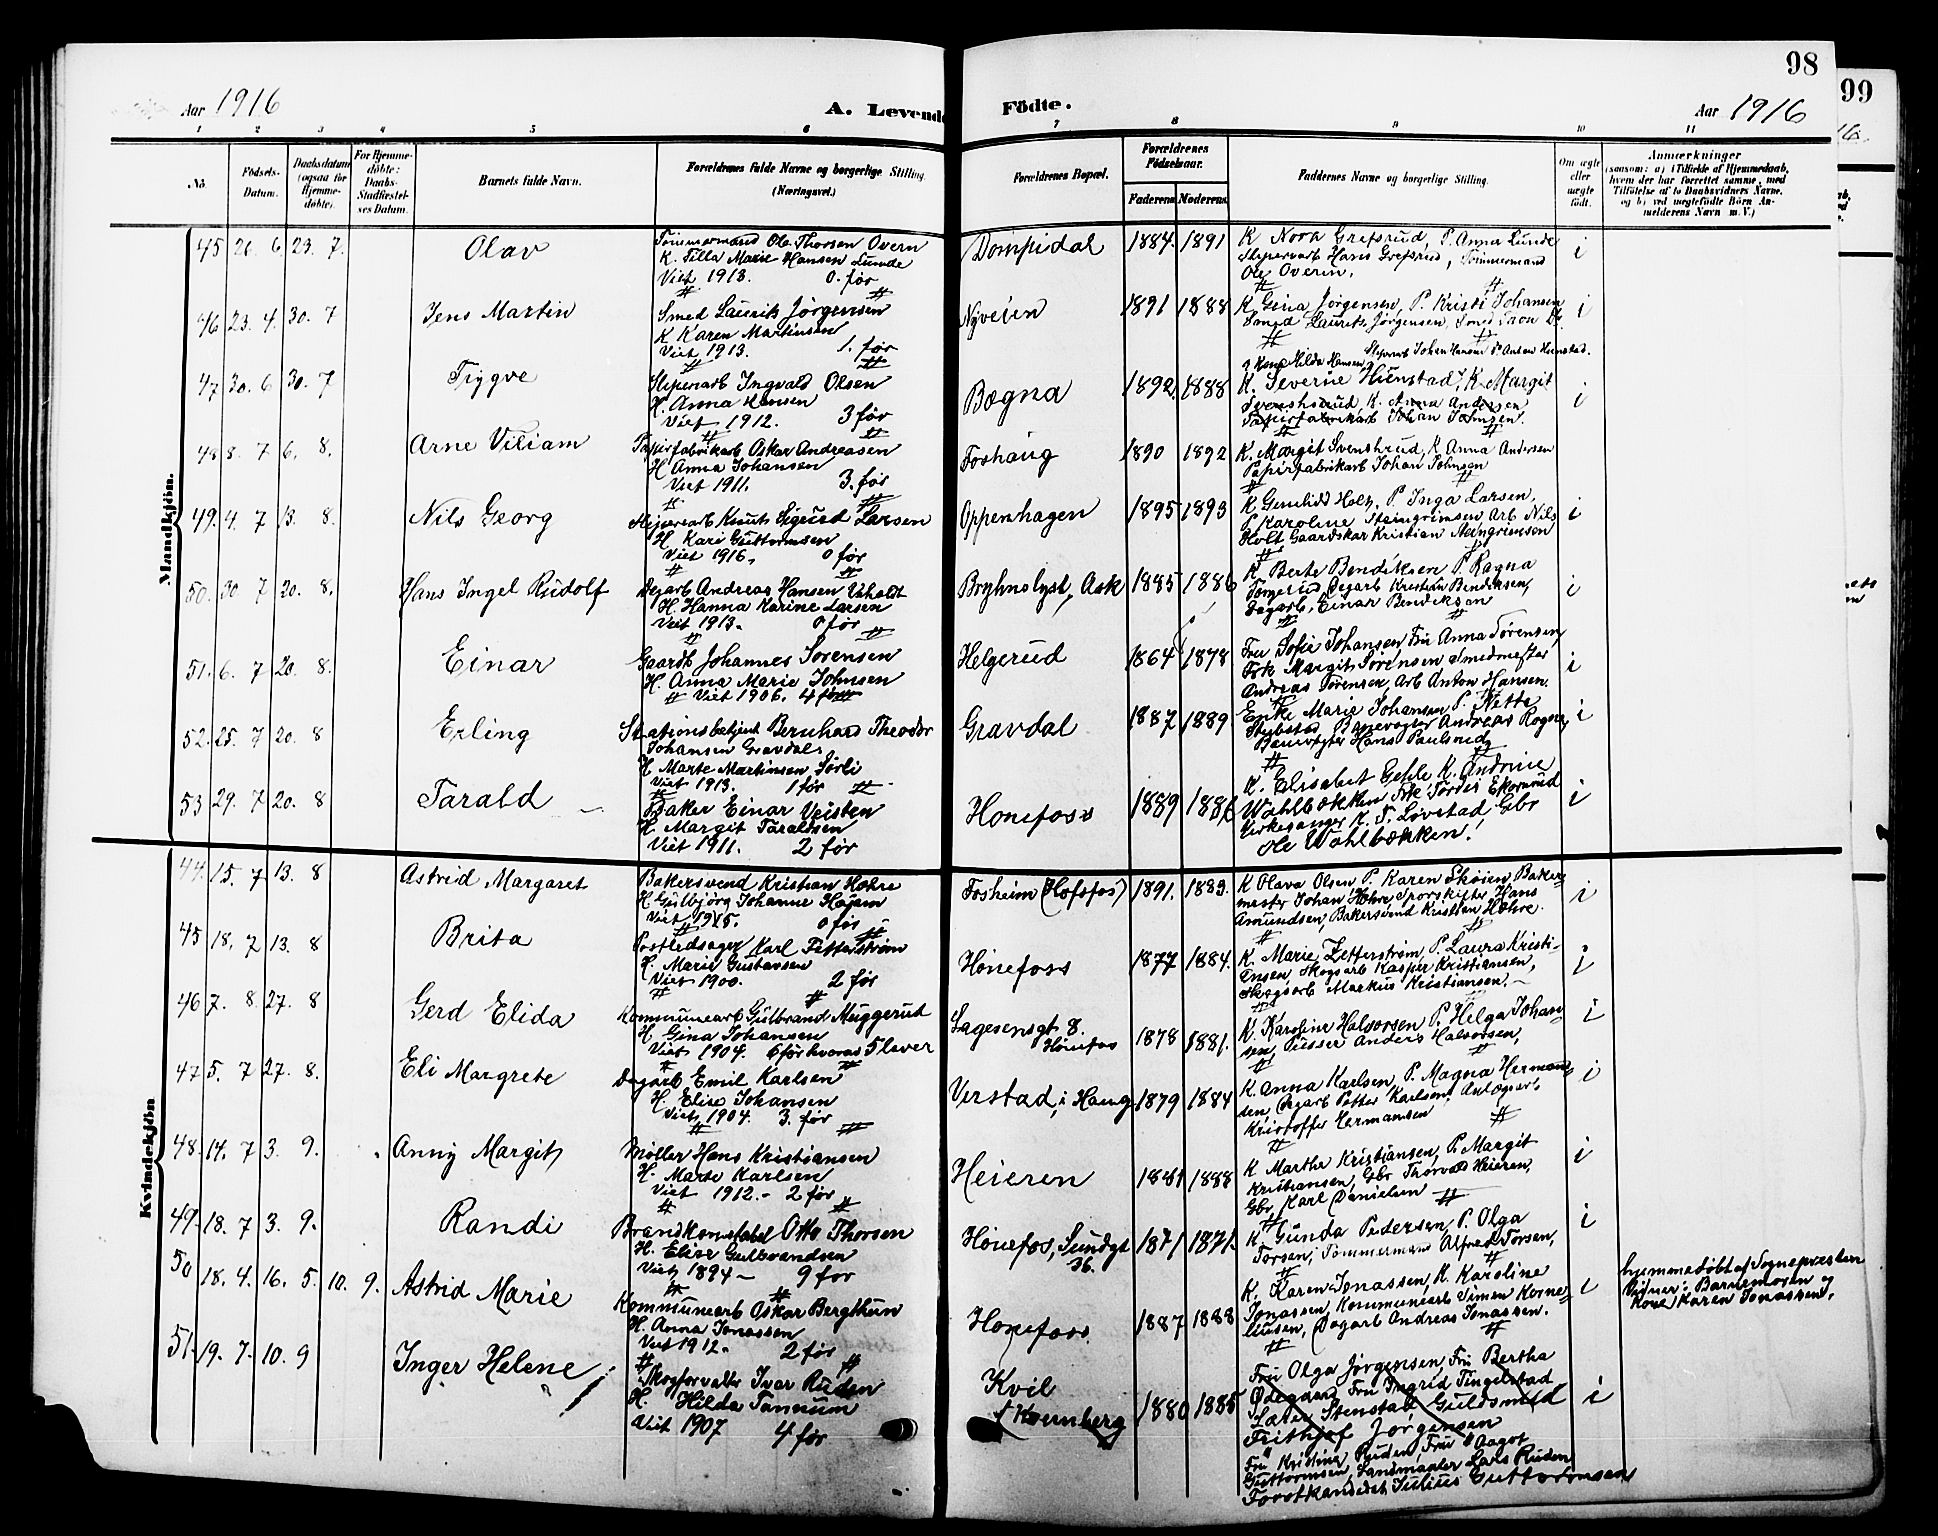 98
99
Aar 1916
A. Levende
Födte.
Aar 1916
1 2 3 4 5 6 7 8 9 10 11
No.
Födsels-
Datum.
Daabsdatum
(ogsaa for
Hjemme-
döbte).
For Hjemme-
döbte:
Daabs-
Stadfæstel-
ses Datum.
Barnets fulde Navn.
Forældrenes fulde Navne og borgerlige Stilling
(Næringsvei.)
Forældrenes Bopæl.
Forældrenes
Födselsaar.
Faderens
Moderens
Faddernes Navne og borgerlige Stilling.
Om ægte
eller
uægte
födt.
Anmærkninger
(saasom: a) i Tilfælde af Hjemmedaab,
hvem der har forrettet samme, med
Tilföielse af to Daabsvidners Navne,
og b) ved uægtefödte Börn An-
melderens Navn m. V.)
Mandkjön.
45 26. 6 23. 7.
Olav
Tømmermand Ole Thorsen Overn
K. Tilla Marie Hansen Lunde
Viet 1913. 0. før
Dompidal 1884. 1891
K Nora Grefsrud, P. Anna Lunde
Slipersarb Hans Grefsrud, Tømmermand
Ole Overn.
i
46 23. 4. 30. 7
Jens Martin
Smed Laurits Jørgensen
K Karen Martinsen
Viet 1913. 1. før
Nyveien 1891 1888
K Gina Jørgensen, P. Kristi Johansen
Smed Laurits Jørgensen, Smed
i
47 30. 6 30. 7
Tryggve
Sliperiarb Ingvald Olsen
H. Anna Hansen
Viet 1912. 3 før
Bægna 1892 1888
K. Severine Hunstad, K. Margit
Svenshrud, K. Anna Andersen
Papirfabrikarb Johan Johnsen.
i
48 8. 7 6. 8.
Arne Viliam
Papirfabrikarb Oskar Andreasen
H Anna Johansen
Viet 1911. 3. før
Foshaug 1890 1892
K. Margit Svenshrud, K Anna Andersen
Papirfabrikarb Johan Johnsen
49. 4. 7 13. 8.
Nils Georg
Knut Sigurd Larsen
H. Kari Guttormsen
Viet 1916. 0 før
Oppenhagen 1895 1893
K Gunhild Holt, P. Inga Larsen,
P Karoline Steingrimsen, Arb Nils
Holt Gaardskar Kristian Steingrimsen
i
50. 30. 7 20. 8.
Hans Ingel Rudolf
Dagarb Andreas Hansen
H. Hanna Karine Larsen
Viet 1913. 0 før
Bryhnslyst, Ask 1885 1886
K Berte Bendiksen P. Ragna
Dagarb Kristian Bendiksen,
Dagarb, Einar Bendiksen
i
51. 6. 7 20. 8.
Einar
Gaardb Johannes Sørensen
H. Anna Marie Johnsen
Viet 1906. 4 før
Helgerud 1864 1878
Fru Sofie Johansen, Fru Anna Sørensen,
Frk Margit Sørensen Smedmester
Andreas Sørensen, Arb Anton Hansen.
i
52. 25. 7 20. 8
Erling
Stationsbetjent Bernhard Theodor
Johansen Gravdal.
H. Marte Martinsen Sørli
Viet 1913. 1 før
Gravdal 1887 1889
Enke Marie Johansen P. Nette
Banevogter Andreas Rogne,
Banevogter Hans Paulsrud
i
53 29. 7 20. 8
Tarald
Baker Einar Veisten
H. Margit Taraldsen
Viet 1911. 2 før
Hønefoss 1889 1886
K. Elisabet Gehle K. Andrine
Wahlbækken, Frk Tordis Ekornrud
Kirkesanger K. T. Løvstad Gbr
Ole Wahlbækken.
i
Kvindekjön
44. 15. 7 13. 8
Astrid Margaret
Bakersvend Kristian Hæhre
H. Gulbjørg Johanne
Viet 1915. 0 før
Fosheim (Hofsfos) 1891. 1883.
K Olava Olsen P. Karen Skøien Baker-
mester Johan Hæhre, Sporskifter Hans
Amundsen, Bakersvend Kristian Hæhre.
i
45 18. 7 13. 8
Brita
Postledsager Karl Zetterstrøm
H. Marie Gustavsen
Viet 1900. 2 før
Hønefoss 1877 1884.
K. Marie Zetterstrøm, P. Laura Kristi-
ensen, Skogsarb Kasper Kristiansen,
Skogsarb Markus Kristiansen.
i
46 7. 8. 27. 8
Gerd Elida
Kommunearb Gulbrand Muggerud
H. Gina Johansen
Viet 1904. 6 før hvoraf 5 lever
Lagesensgt 8.
Hønefos 1878 1881.
K. Karoline Halvorsen P. Helga Johan-
sen, Pusser Anders Halvorsen,
i
47 5. 7 27. 8.
Eli Margrete
Dagarb Emil Karlsen
H. Elise Johansen
Viet 1904. 3. før
Verstad, i Haug 1879 1884
K. Anna Karlsen, P. Magna Herman-
sen, Dagarb Petter Karlsen, Anlægsarb
Kristoffer Hermansen
i
48. 14. 7 3. 9.
Anny Margit
Møller Hans Kristiansen
H. Marte Karlsen
Viet 1912. - 2 før
Heieren 1881 1888
K Marthe Kristiansen, P. Margit
Kristiansen, Gbr Thorvald Heieren,
Gbr, Karl Danielsen
i
49. 18. 7 3. 9.
Randi
Brandkonstabel Otto Thorsen
H. Elise Gulbrandsen
Viet 1894 - 9 før
Hønefos, Sundgt
36. 1871 1871.
K Gunda Pedersen, P. Olga
Torsen, Tømmermand Alfred Torsen,
i
50 18. 4. 16. 5. 10. 9.
Astrid Marie
Kommunearb Oskar Bergthun
H. Anna Jonassen
Viet 1912. 2 før
Hønefoss 1887 1888
K. Karen Jonassen, K. Karoline
Jonassen, Kommunearb Simen Korne-
liusen, Dagarb Andreas Jonassen.
i
hjemmedøbt af Sognepræsten
Vidner: Barnemoren og
Kone Karen Jonassen.
51. 19. 7. 10. 9
Inger Helene
Skogforvalter Ivar Ruden
H. Hilda Tannum
Viet 1907 4 før
Kvil
1880 1885
Fru Olga Jørgensen, Fru Bertha
Ødegaard Fru Ingrid Tingelstad
Stenstad Guldsmed
Frithjof Jørgensen
Fru Kristine Ruden, Fru Aagot
Guttormsen, Landmaaler Lars Ruden
Forstkandidat Julius Guttormsen
i